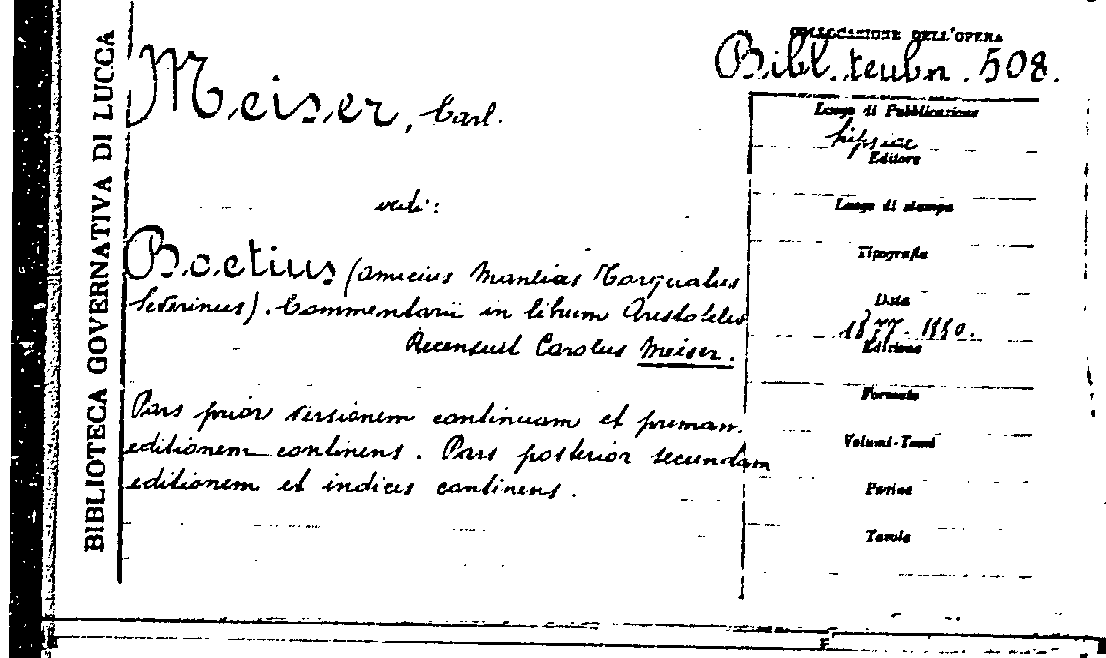 BIBLIOTECA GOVERNATIVA DI LUCCA
COLLOCAZIONE DELL'OPERA
Bibl. teubn. 508.
Meiser, Carl.
vedi:
Boetius (Amicius Manlias Torquatus
Severinus). Commentarii in librum Aristotelis
Recensuit Carolus Meiser.
Pars prior versionem continuam et primam
editionem continens. Pars posterior secundam
editionem et indices continens.
Luogo di Pubblicazione
Lipsiae
Editore
Luogo di stampa
Tipografia
Data
1877-1880.
Edizione
Formato
Volumi-Tomi
Pagine
Tavole